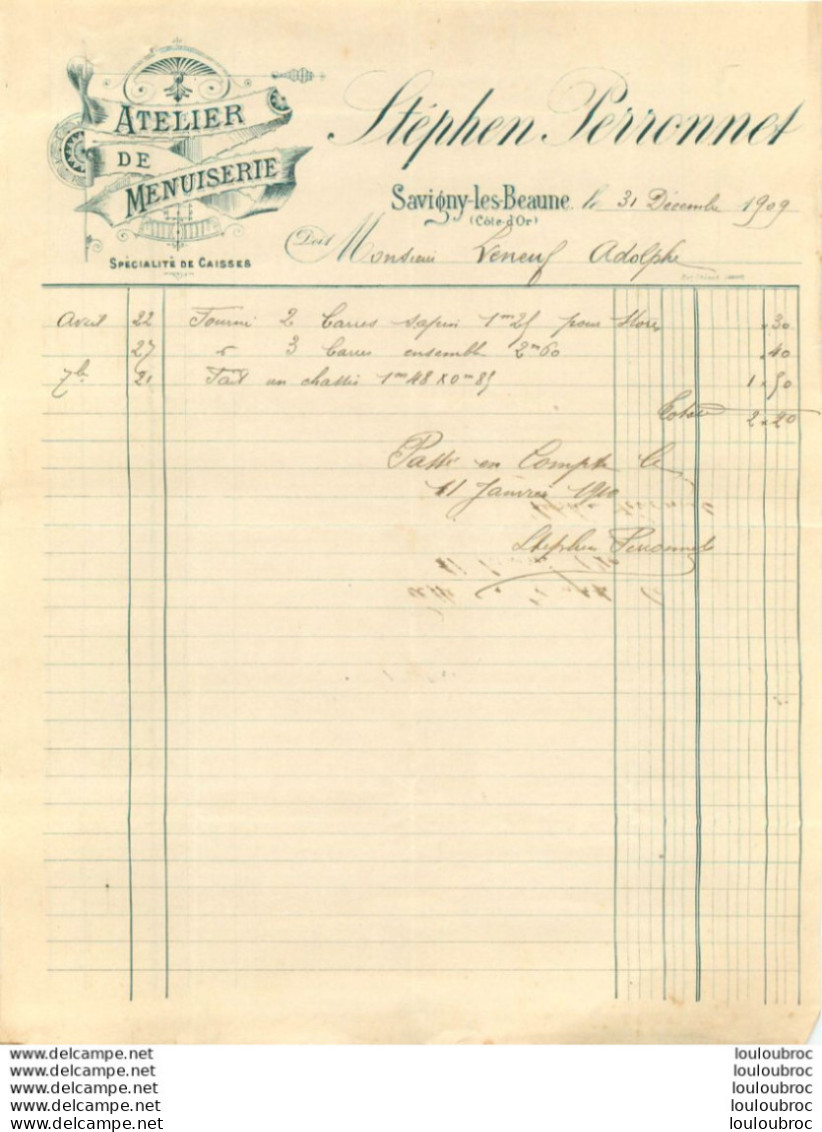 ATELIER
DE
MENUISERIE
SPÉCIALITÉ DE CAISSES
Stéphen Perronnet
Savigny-les-Beaune, le 31 Décembre 1909
(Côte-d'Or)
Doit Monsieur Leneuf Adolphe
Avril 22 Fourni 2 Barres sapin 1m25 pour Stores ,30
27 3 Barres ensemble 2m60 ,40
7b 21 Fait un chassis 1m48 x 0m85 1,50
Total 2,20
Passé en Compte le
11 Janvier 1910
Stéphen Perronnet
www.delcampe.net louloubroc
www.delcampe.net louloubroc
www.delcampe.net louloubroc
www.delcampe.net louloubroc
www.delcampe.net louloubroc